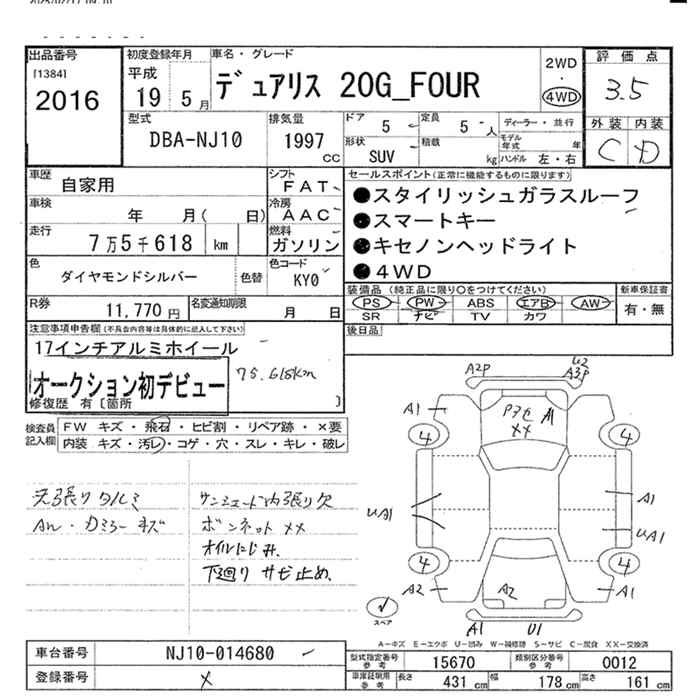 出品番号
[1384]
2016
初度登録年月
平成
19 5月
車名・グレード
デュアリス 20G_FOUR
2WD
・
4WD
評価点
3.5
外装 内装
C D
型式
DBA-NJ10
排気量
1997
CC
ドア
5
定員
5 人
形状
SUV
積載
kg
ディーラー・並行
モデル年式 年
ハンドル 左・右
車歴
自家用
シフト
FAT
車検
年 月( 日)
冷房
AAC
走行
7万5千618 km
燃料
ガソリン
色
ダイヤモンドシルバー
色替
色コード
KY0
R券
11,770円
名変通知期限
月 日
セールスポイント(正常に機能するものに限ります)
●スタイリッシュガラスルーフ
●スマートキー
●キセノンヘッドライト
●4WD
装備品(純正品に限り○をつけてください)
PS PW ABS エアB AW
SR ナビ TV カワ
新車保証書
有・無
後日品
注意事項申告欄(不具合内容等は具体的に記入して下さい)
17インチアルミホイール
オークション初デビュー
75.618km
修復歴 有〔箇所 〕
検査員記入欄
FW キズ・飛石・ヒビ割・リペア跡・×要
内装 キズ・汚レ・コゲ・穴・スレ・キレ・破レ
天張りタルミ
AW・カミラーキズ
サンシェード内張り欠
ボンネット××
オイルにじみ.
下廻りサビ止め.
A2P
U2
A3P
A1
Pスセ
××
A1
4
4
UA1
A1
UA1
4
4
A2
A2
A1
スペア
A1
U1
A−キズ E−エクボ U−凹み W−補修跡 S−サビ C−腐食 XX−交換済
車台番号
NJ10-014680
登録番号
×
型式指定番号
参考
15670
類別区分番号
参考
0012
車庫証明用
参考
長さ
431 cm
幅
178 cm
高さ
161 cm